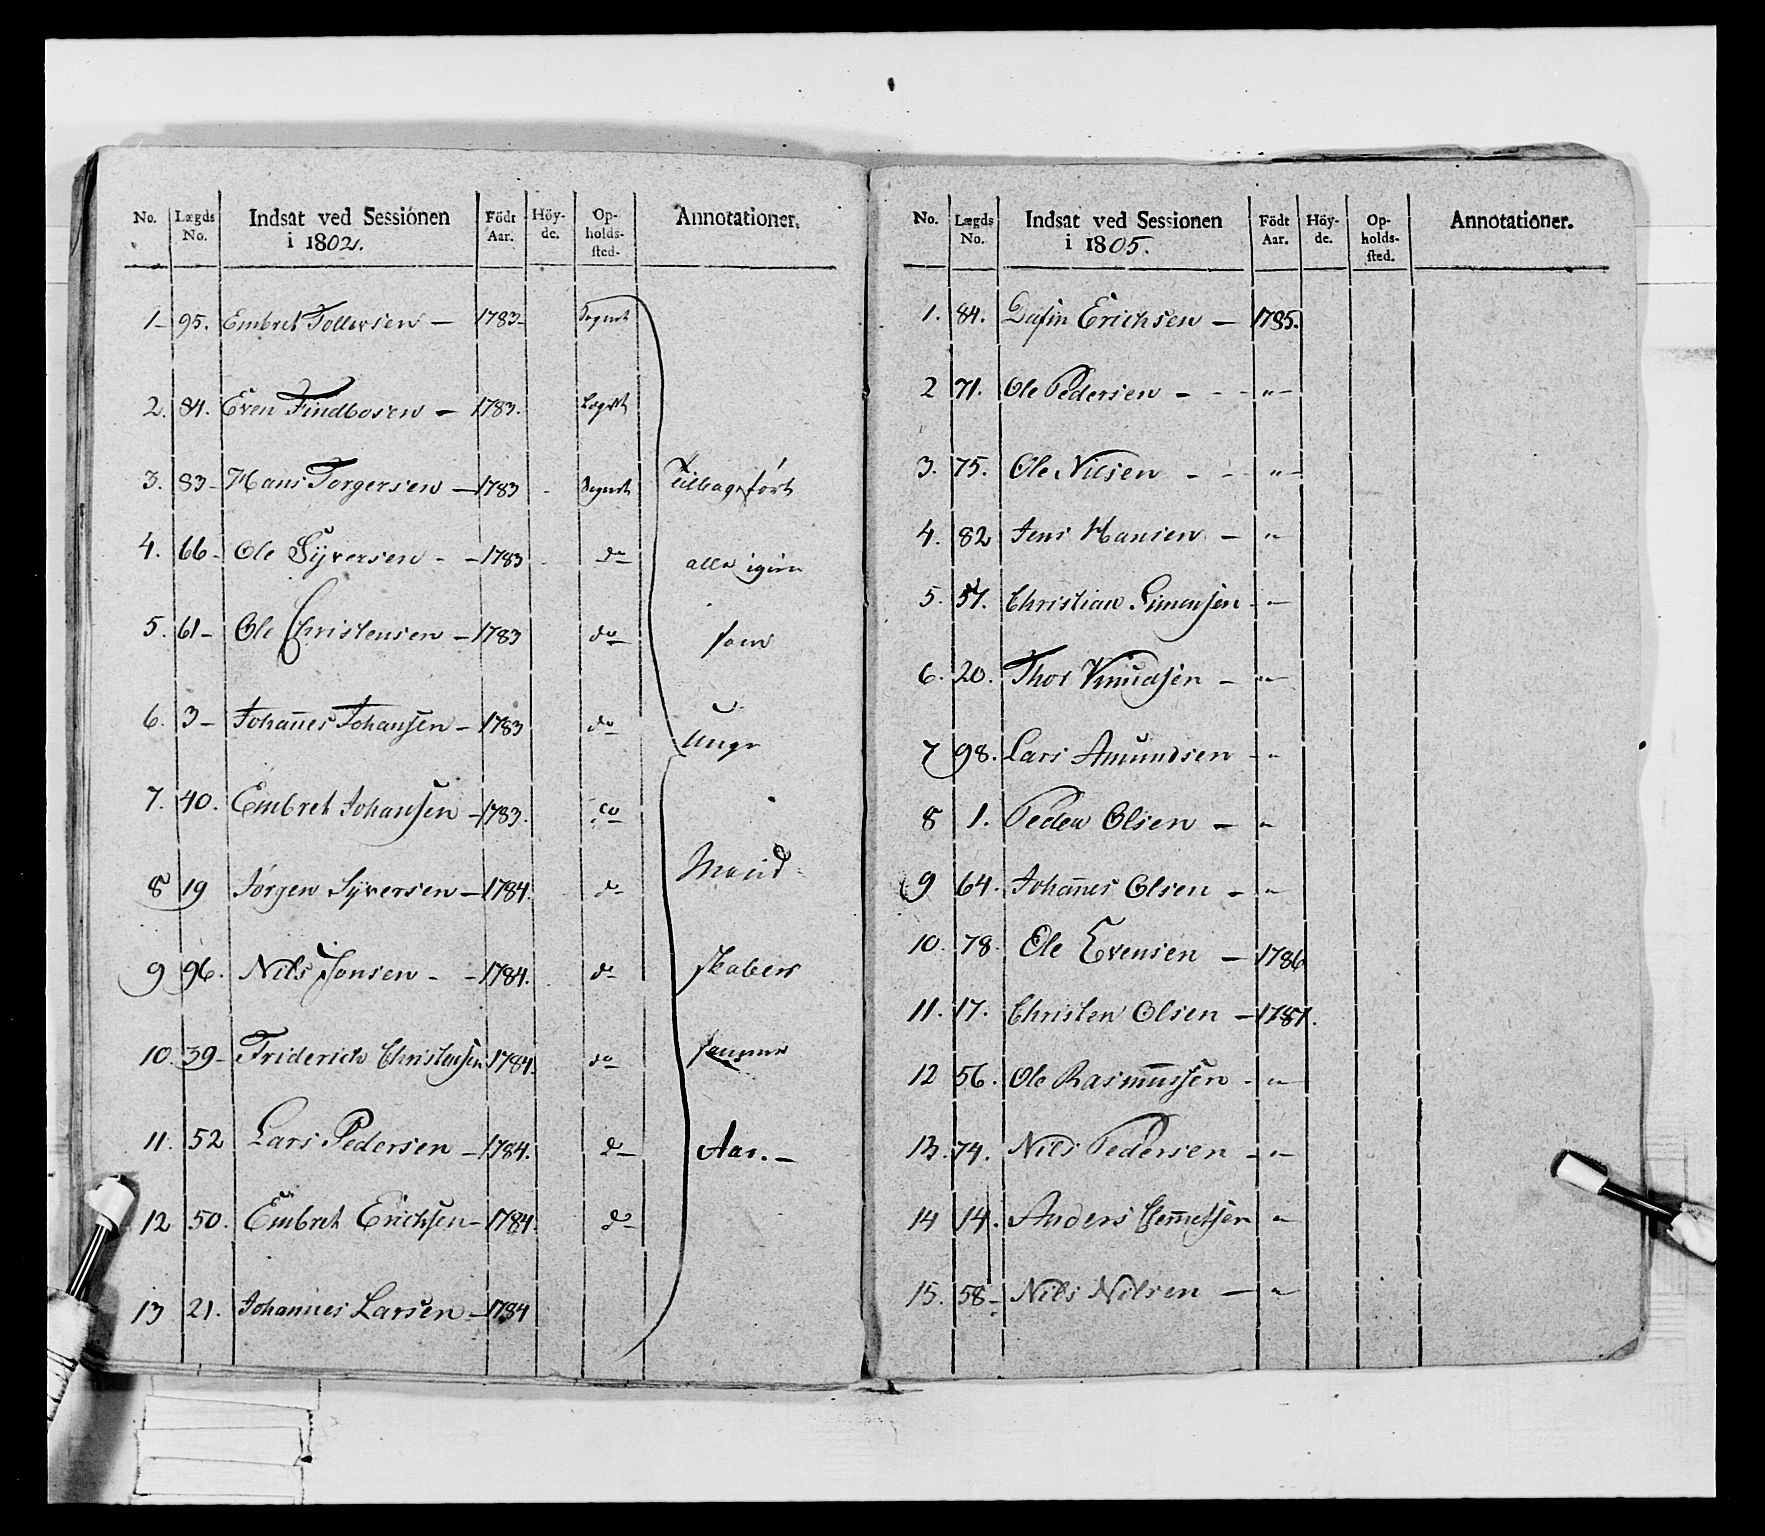 No. Lægds No. Indsat ved Sessionen i 1802. Födt Aar. Höy-de. Op-holds-sted. Annotationer.
1 – 95. Embret Tollersen – 1783 – Sognet
2. 84. Even Findbosen – 1783. Lægdet
3. 83 – Hans Torgersen – 1783 Sognet Tilbageført
4. 66 – Ole Syversen – 1783 do alle igien
5. 61 – Ole Christensen – 1783 do som
6. 3 – Johannes Johansen – 1783 do Unge
7. 40. Embret Johansen – 1783. do
8 19 Jörgen Syversen – 1784. do Mand-
9 96. Nils Jonsen – 1784. do skabers
10. 39 – Friderich Christensen 1784. do
11. 52 Lars Pedersen – 1784. do Aar. –
12 50. Embret Erichsen – 1784. do
13 21. Johannes Larsen – 1784
No. Lægds No. Indsat ved Sessionen i 1805. Födt Aar. Höy-de. Op-holds-sted. Annotationer.
1. 84. Dafin Erichsen – 1785.
2 71. Ole Pedersen – - - " –
3. 75. Ole Nilsen - - - " –
4. 82 Jens Hansen – "
5. 57. Christian Simensen - " –
6. 20. Thor Knudsen – " –
7 98. Lars Amundsen – "
8 1. Peder Olsen – "
9 64. Johannes Olsen – "
10. 78 Ole Evensen – 1786
11. 17. Christen Olsen – 1787.
12 56. Ole Rasmussen - "
13. 74. Nils Pedersen – "
14 14. Anders Clemmetsen "
15. 58 – Nils Nilsen – "